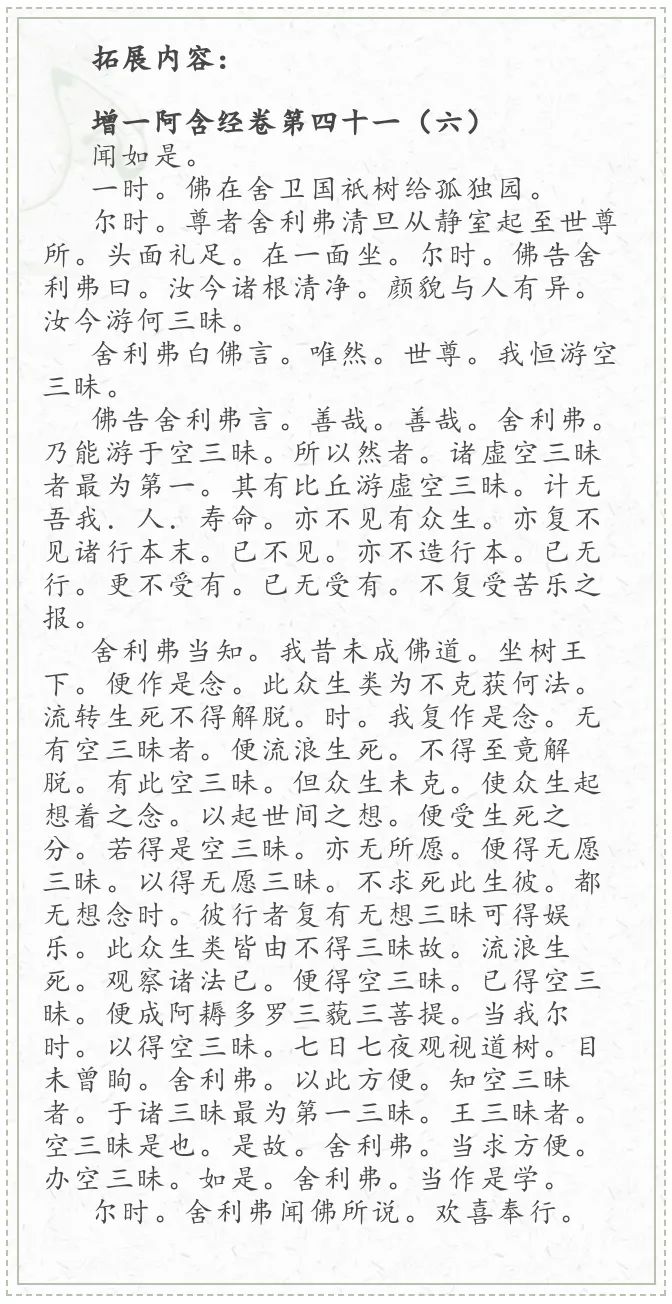 拓展内容：
增一阿含经卷第四十一（六）
闻如是。
一时。佛在舍卫国祇树给孤独园。
尔时。尊者舍利弗清旦从静室起至世尊
所。头面礼足。在一面坐。尔时。佛告舍
利弗曰。汝今诸根清净。颜貌与人有异。
汝今游何三昧。
舍利弗白佛言。唯然。世尊。我恒游空
三昧。
佛告舍利弗言。善哉。善哉。舍利弗。
乃能游于空三昧。所以然者。诸虚空三昧
者最为第一。其有比丘游虚空三昧。计无
吾我．人．寿命。亦不见有众生。亦复不
见诸行本末。已不见。亦不造行本。已无
行。更不受有。已无受有。不复受苦乐之
报。
舍利弗当知。我昔未成佛道。坐树王
下。便作是念。此众生类为不克获何法。
流转生死不得解脱。时。我复作是念。无
有空三昧者。便流浪生死。不得至竟解
脱。有此空三昧。但众生未克。使众生起
想着之念。以起世间之想。便受生死之
分。若得是空三昧。亦无所愿。便得无愿
三昧。以得无愿三昧。不求死此生彼。都
无想念时。彼行者复有无想三昧可得娱
乐。此众生类皆由不得三昧故。流浪生
死。观察诸法已。便得空三昧。已得空三
昧。便成阿耨多罗三藐三菩提。当我尔
时。以得空三昧。七日七夜观视道树。目
未曾眴。舍利弗。以此方便。知空三昧
者。于诸三昧最为第一三昧。王三昧者。
空三昧是也。是故。舍利弗。当求方便。
办空三昧。如是。舍利弗。当作是学。
尔时。舍利弗闻佛所说。欢喜奉行。